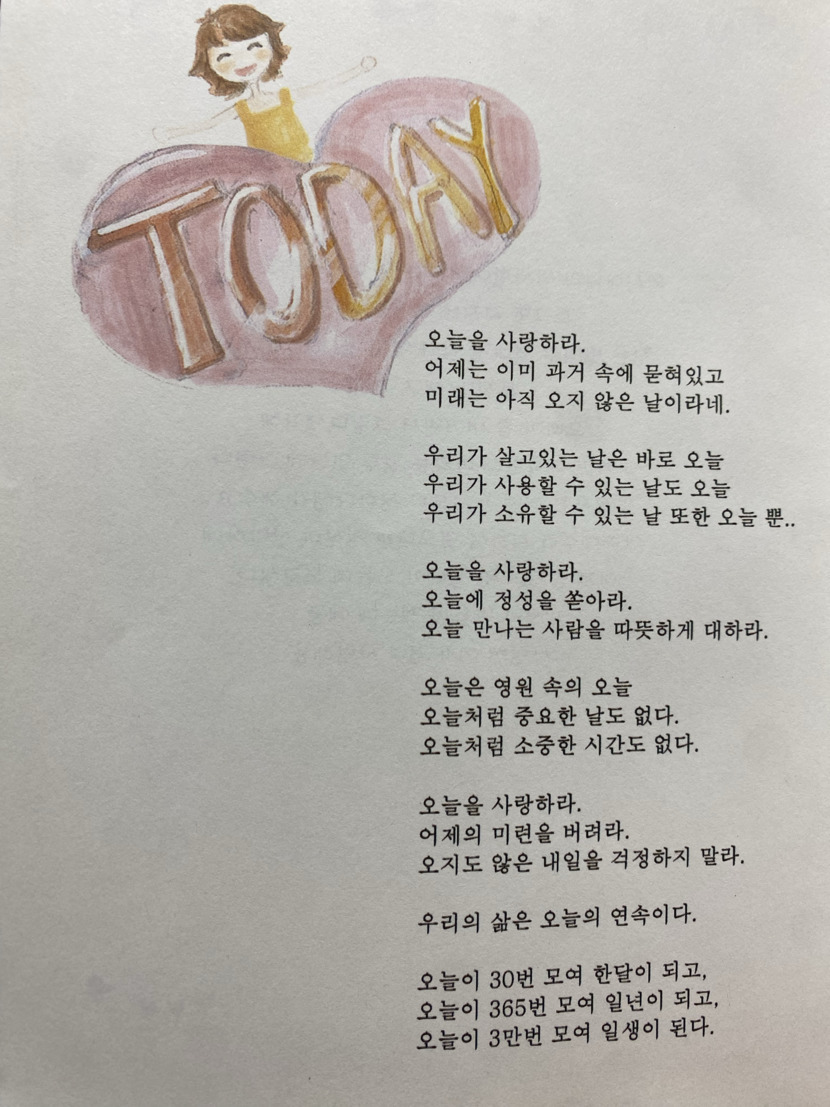 TODAY
오늘을 사랑하라.
어제는 이미 과거 속에 묻혀있고
미래는 아직 오지 않은 날이라네.
우리가 살고있는 날은 바로 오늘
우리가 사용할 수 있는 날도 오늘
우리가 소유할 수 있는 날 또한 오늘 뿐..
오늘을 사랑하라.
오늘에 정성을 쏟아라.
오늘 만나는 사람을 따뜻하게 대하라.
오늘은 영원 속의 오늘
오늘처럼 중요한 날도 없다.
오늘처럼 소중한 시간도 없다.
오늘을 사랑하라.
어제의 미련을 버려라.
오지도 않은 내일을 걱정하지 말라.
우리의 삶은 오늘의 연속이다.
오늘이 30번 모여 한달이 되고,
오늘이 365번 모여 일년이 되고,
오늘이 3만번 모여 일생이 된다.